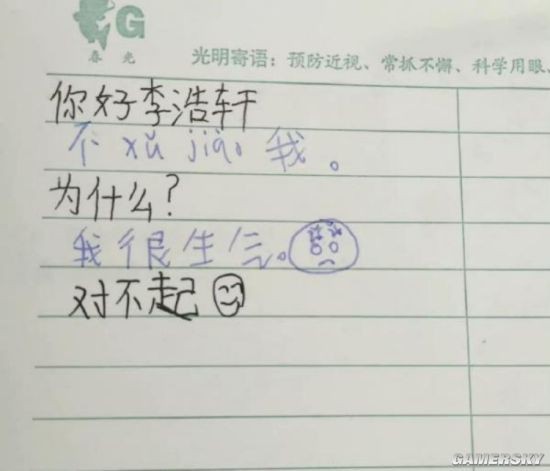 G
春光
光明寄语：预防近视、常抓不懈、科学用眼、
你好李浩轩
不 xǔ jiào 我。
为什么？
我很生气。
对不起
GAMERSKY